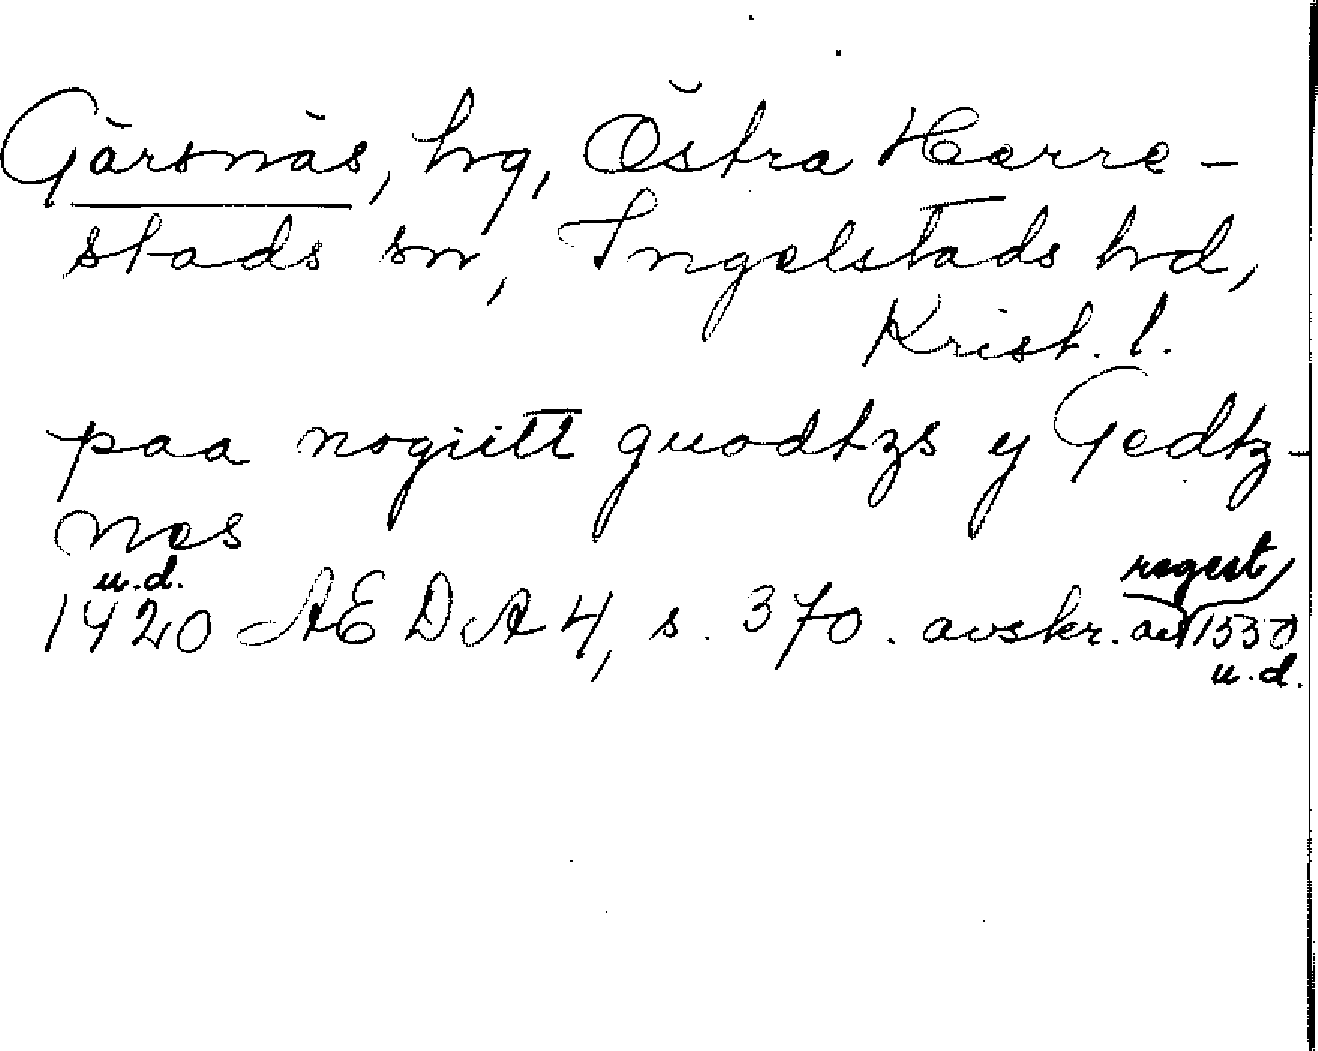 Gärsnäs, hrg, Östra Herre-
stads sn, Ingelstads hrd,
Krist. l.
paa nogiitt guodtzs y Gedtz-
nes
u.d. regest
1420 AEDA 4, s. 370. avskr. av 1550
u.d.